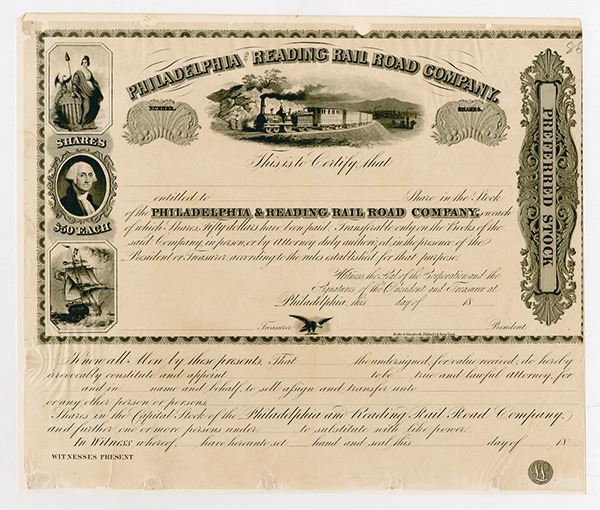 86
PHILADELPHIA AND READING RAIL ROAD COMPANY.
NUMBER
SHARES
SHARES
$50 EACH
PREFERRED STOCK
This is to Certify that
entitled to Share in the Stock
of the PHILADELPHIA & READING RAIL ROAD COMPANY, on each
of which Shares Fifty dollars have been paid. Transferable only on the Books of the
said Company, in person, or by Attorney duly authorized, in the presence of the
President or Treasurer, according to the rules established for that purpose.
Witness the Seal of the Corporation and the
Signatures of the President and Treasurer at
Philadelphia, this day of 18
Treasurer
President
Know all Men by these presents, That the undersigned, for value received, do hereby
irrevocably constitute and appoint to be true and lawful attorney, for
and in name and behalf, to sell assign and transfer unto
or any other person or persons,
Shares in the Capital Stock of the Philadelphia and Reading Rail Road Company,
and further one or more persons under to substitute with like power.
In Witness whereof, have hereunto set hand and seal this day of 18
WITNESSES PRESENT